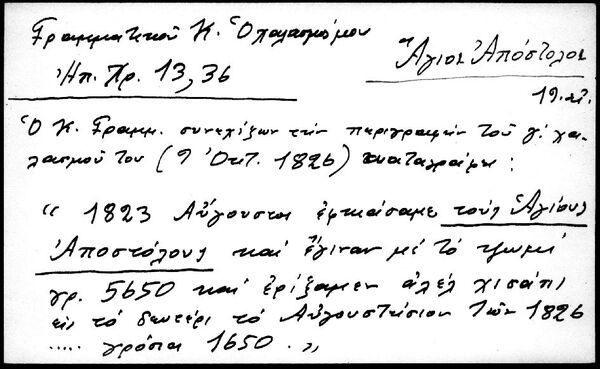 Γραμματικοῦ Κ. Ὁ χαλασμός μου
Ἠπ. Χρ. 13, 36
Ἅγιοι Ἀπόστολοι
19. αἰ.
Ὁ Κ. Γραμμ. συνεχίζων τὴν περιγραφὴν τοῦ γ' χα-
λασμοῦ του (9 Ὀκτ. 1826) καταγράφει:
" 1823 Αὔγουστοι ἐφτιάσαμε τοὺς Ἁγίους
Ἀποστόλους καὶ ἔγιναν μὲ τὸ
γρ. 5650 καὶ ἐρίξαμεν ἀλὲλ χισάπι
εἰς τὸ δευτέρι τὸ Αὐγουστίσιον 1826
..... γρόσια 1650. "